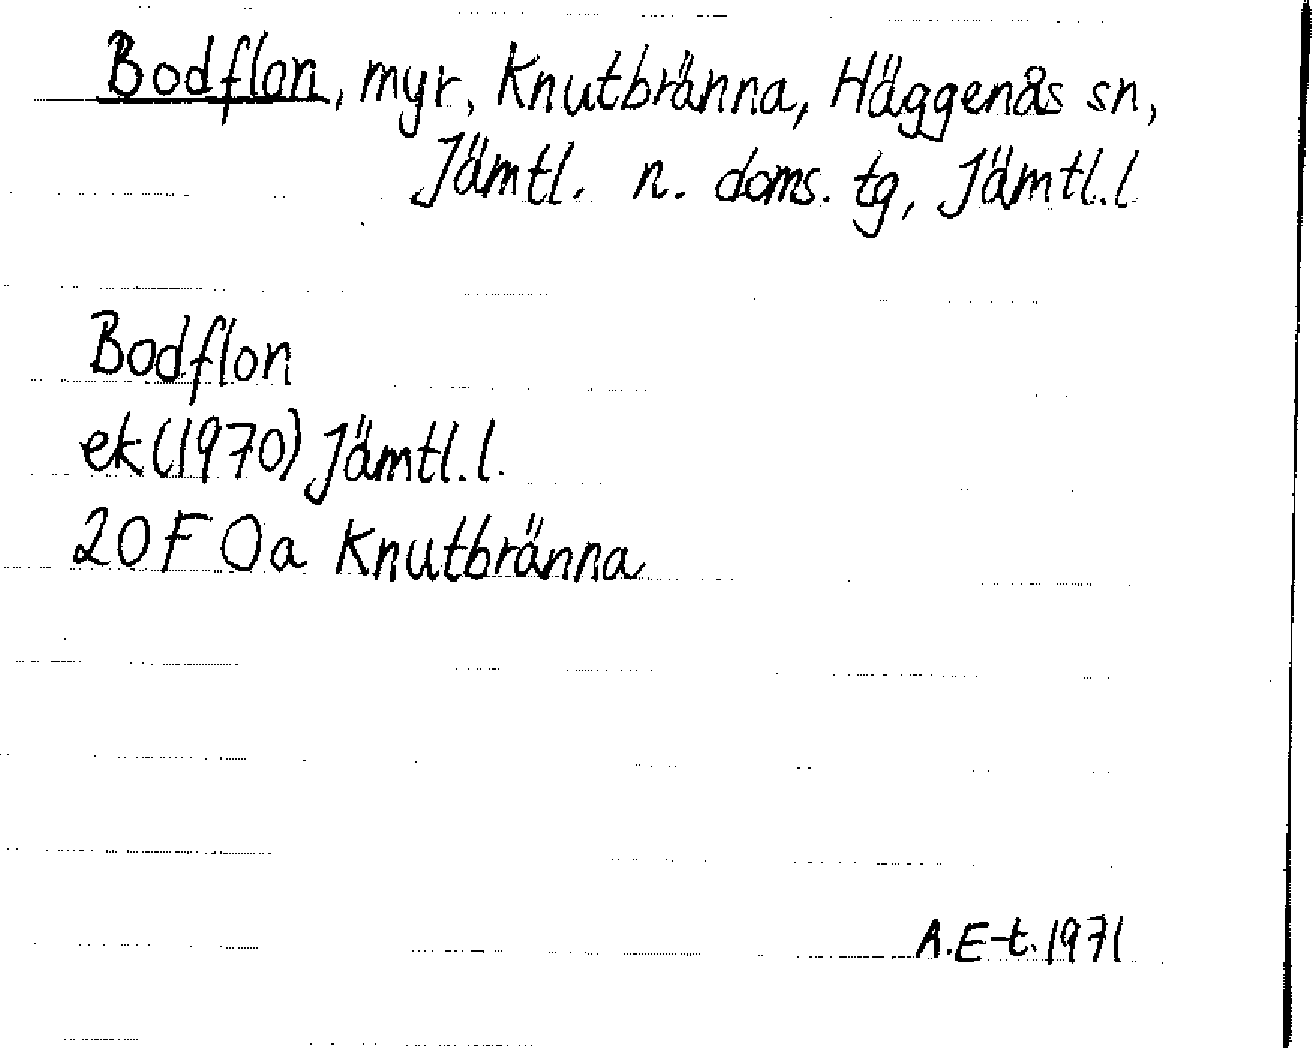 Bodflon, myr, Knutbränna, Häggenås sn,
Jämtl. n. doms. tg, Jämtl.l
Bodflon
ek(1970) Jämtl.l.
20F 0a Knutbränna
A.E-t. 1971